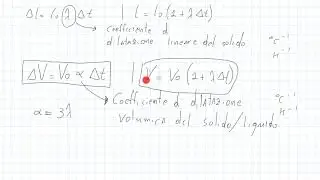 Δl = l₀ λ Δt | l = l₀(1 + λ Δt)
coefficiente d
dilatazione lineare del solido
°C⁻¹
K⁻¹
ΔV = V₀ α Δt | V = V₀(1 + λ Δt)
Coefficiente d dilatazione
volumica del solido/liquido
°C⁻¹
K⁻¹
α = 3λ